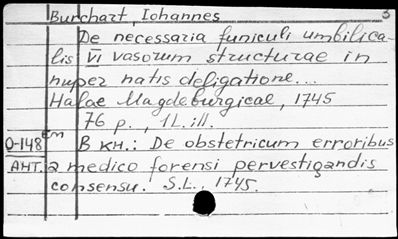 Burchart, Iohannes 3
De necessaria funiculi umbilica-
lis VI vasorum structurae in
nuper natis deligatione...
Halae Magdeburgicae, 1745
76 p., 1L. ill.
О-148 em В кн.: De obstetricum erroribus
АНТ. a medico forensi pervestigandis
consensu. S.L., 1745.